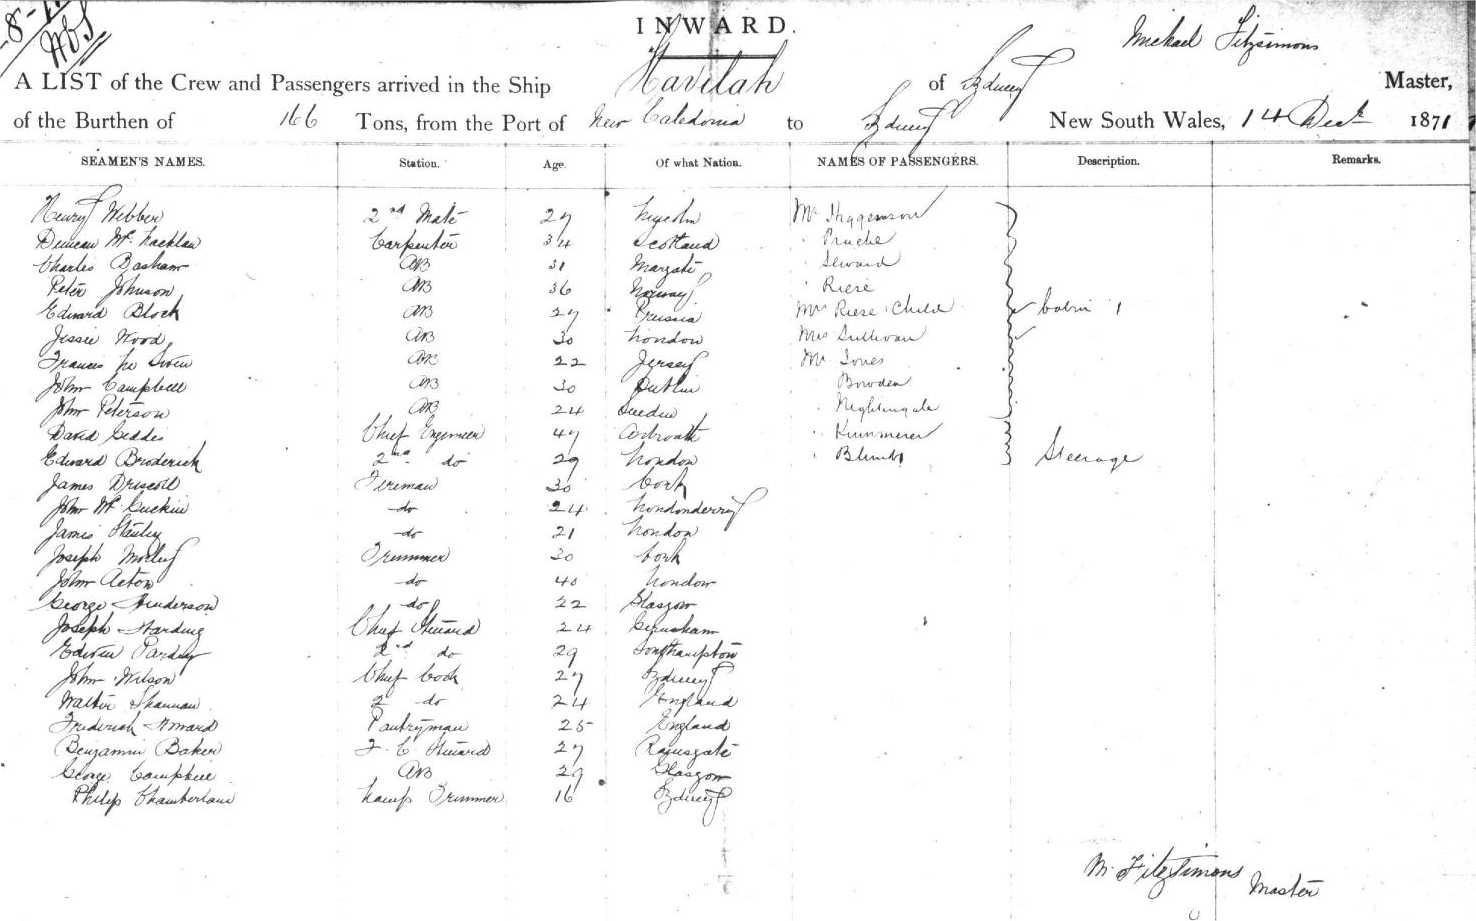 INWARD.
Michael Fitzsimons
A LIST of the Crew and Passengers arrived in the Ship Havilah of Sydney Master,
of the Burthen of 166 Tons, from the Port of New Caledonia to Sydney New South Wales, 14 Decr 1871
SEAMEN'S NAMES. Station. Age. Of what Nation. NAMES OF PASSENGERS. Description. Remarks.
Henry Webber 2nd Mate 27 Lincoln Mr Higgenson
Duncan Mc Lachlan Carpenter 34 Scotland " Pruche
Charles Basham AB 31 Margate " Seward
Peter Johnson AB 36 Norway " Riese
Edward Block AB 27 Prussia Mrs Riese & Child Cabin
Jessie Wood AB 30 London Mrs Sullivan
Francis AB 22 Jersey Mr Jones
John Campbell AB 30 Dublin Bowden
John Peterson AB 24 Sweden " Nightingale
David Geddes Chief Engineer 47 Arbroath "
Edward Broderick 2nd do 29 London " Steerage
James Driscoll Fireman 30 Cork
John Mc Guckin do 24 Londonderry
James Stanley do 21 London
Joseph Morley Trimmer 30 Cork
John Acton do 40 London
George Henderson do 22 Glasgow
Joseph Harding Chief Steward 24
Edwin Purdey 2nd do 29 Southampton
John Wilson Chief Cook 27 Sydney
Walter Shannan 2 do 24 England
Frederick Howard Pantryman 25 England
Benjamin Baker F. C Steward 27 Ramsgate
George Campbell AB 29 Glasgow
Philip Chamberlain Lamp Trimmer 16 Sydney
M. Fitzsimons
Master